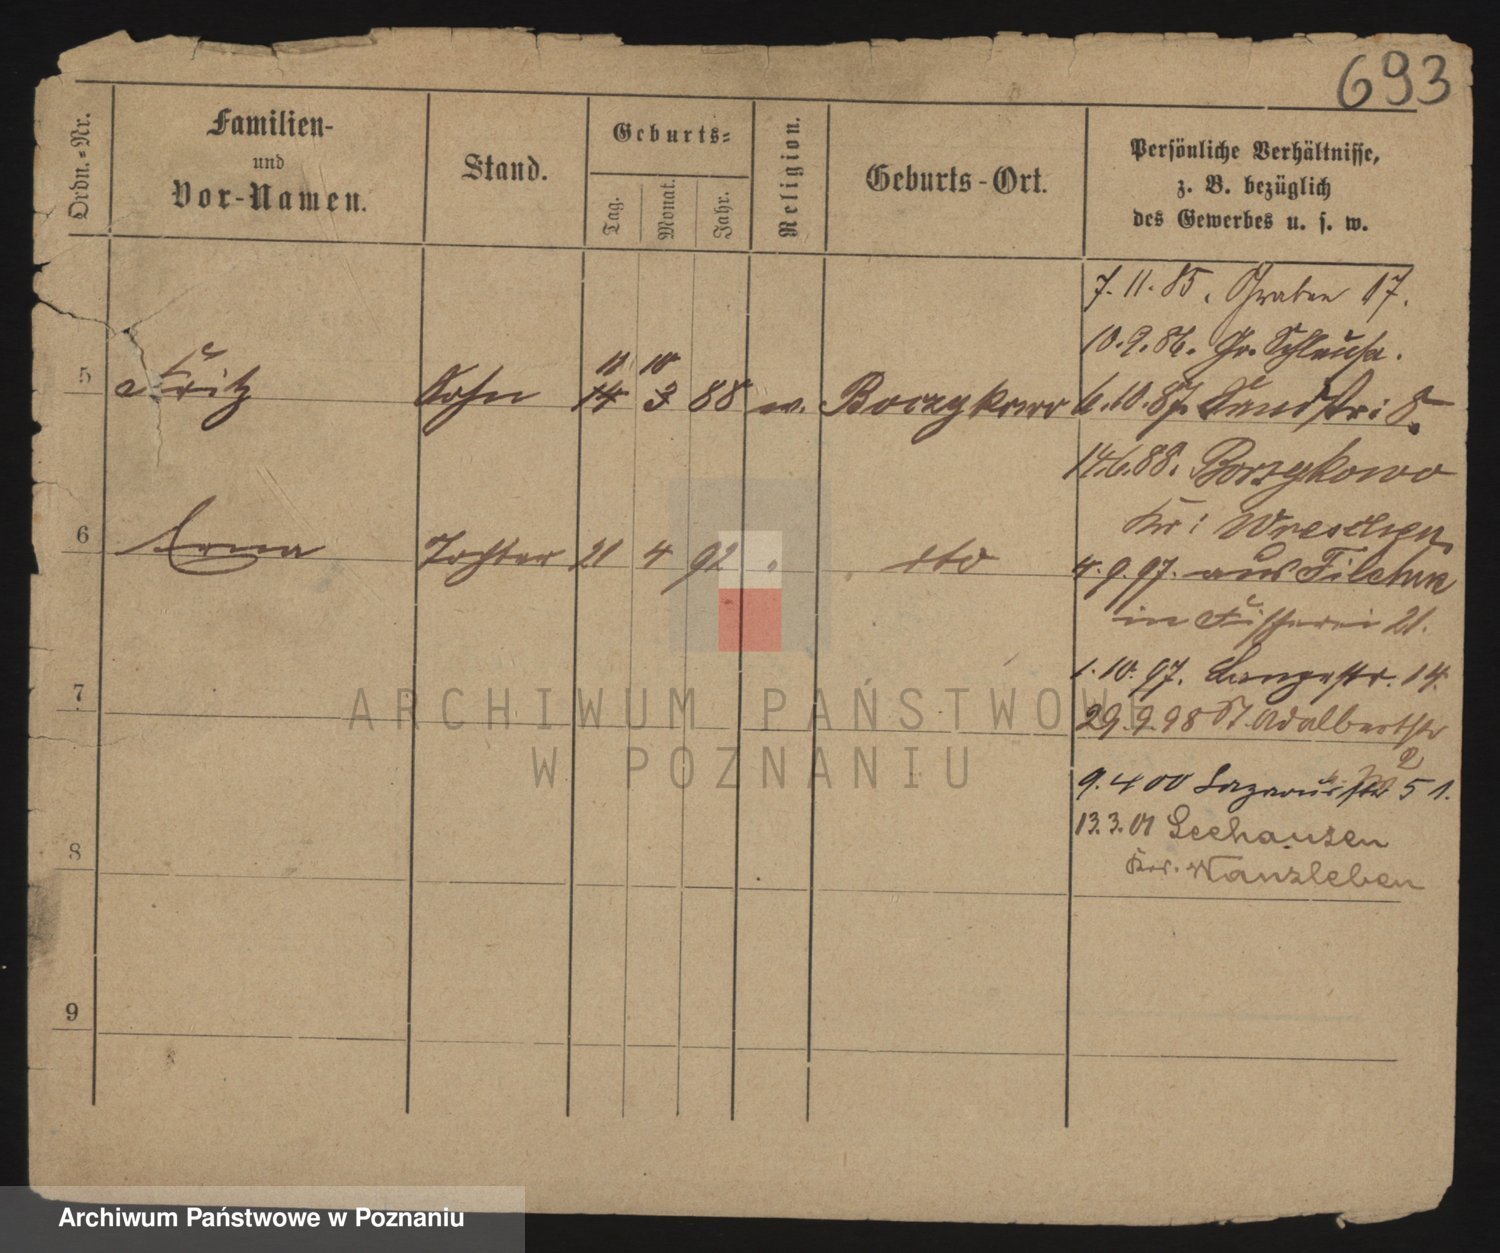 693
Ordn.-Nr.
Familien-
und
Vor-Namen.
Stand.
Geburts-
Tag.
Monat.
Jahr.
Religion.
Geburts-Ort.
Persönliche Verhältnisse,
z. B. bezüglich
des Gewerbes u. s. w.
7. 11. 85. Graben 17.
10. 9. 86. Gr. Schleuse.
11 10
5 Fritz Sohn 14 3 88 Borzykowo 6. 10. 87. 8.
14.6.88. Borzykowo
Kr: Wreschen
6 Erna Tochter 21 4 92 dto 4. 9. 97. aus Filehne
in Fischerei 21.
7
1. 10. 97. Langestr. 14.
29. 9. 98 St. Adalbertstr
2
9. 4 00 Lazarusstr 5 1.
8
13. 3. 01 Seehausen
Kr. Wanzleben
9
ARCHIWUM PAŃSTWOWE
W POZNANIU
Archiwum Państwowe w Poznaniu